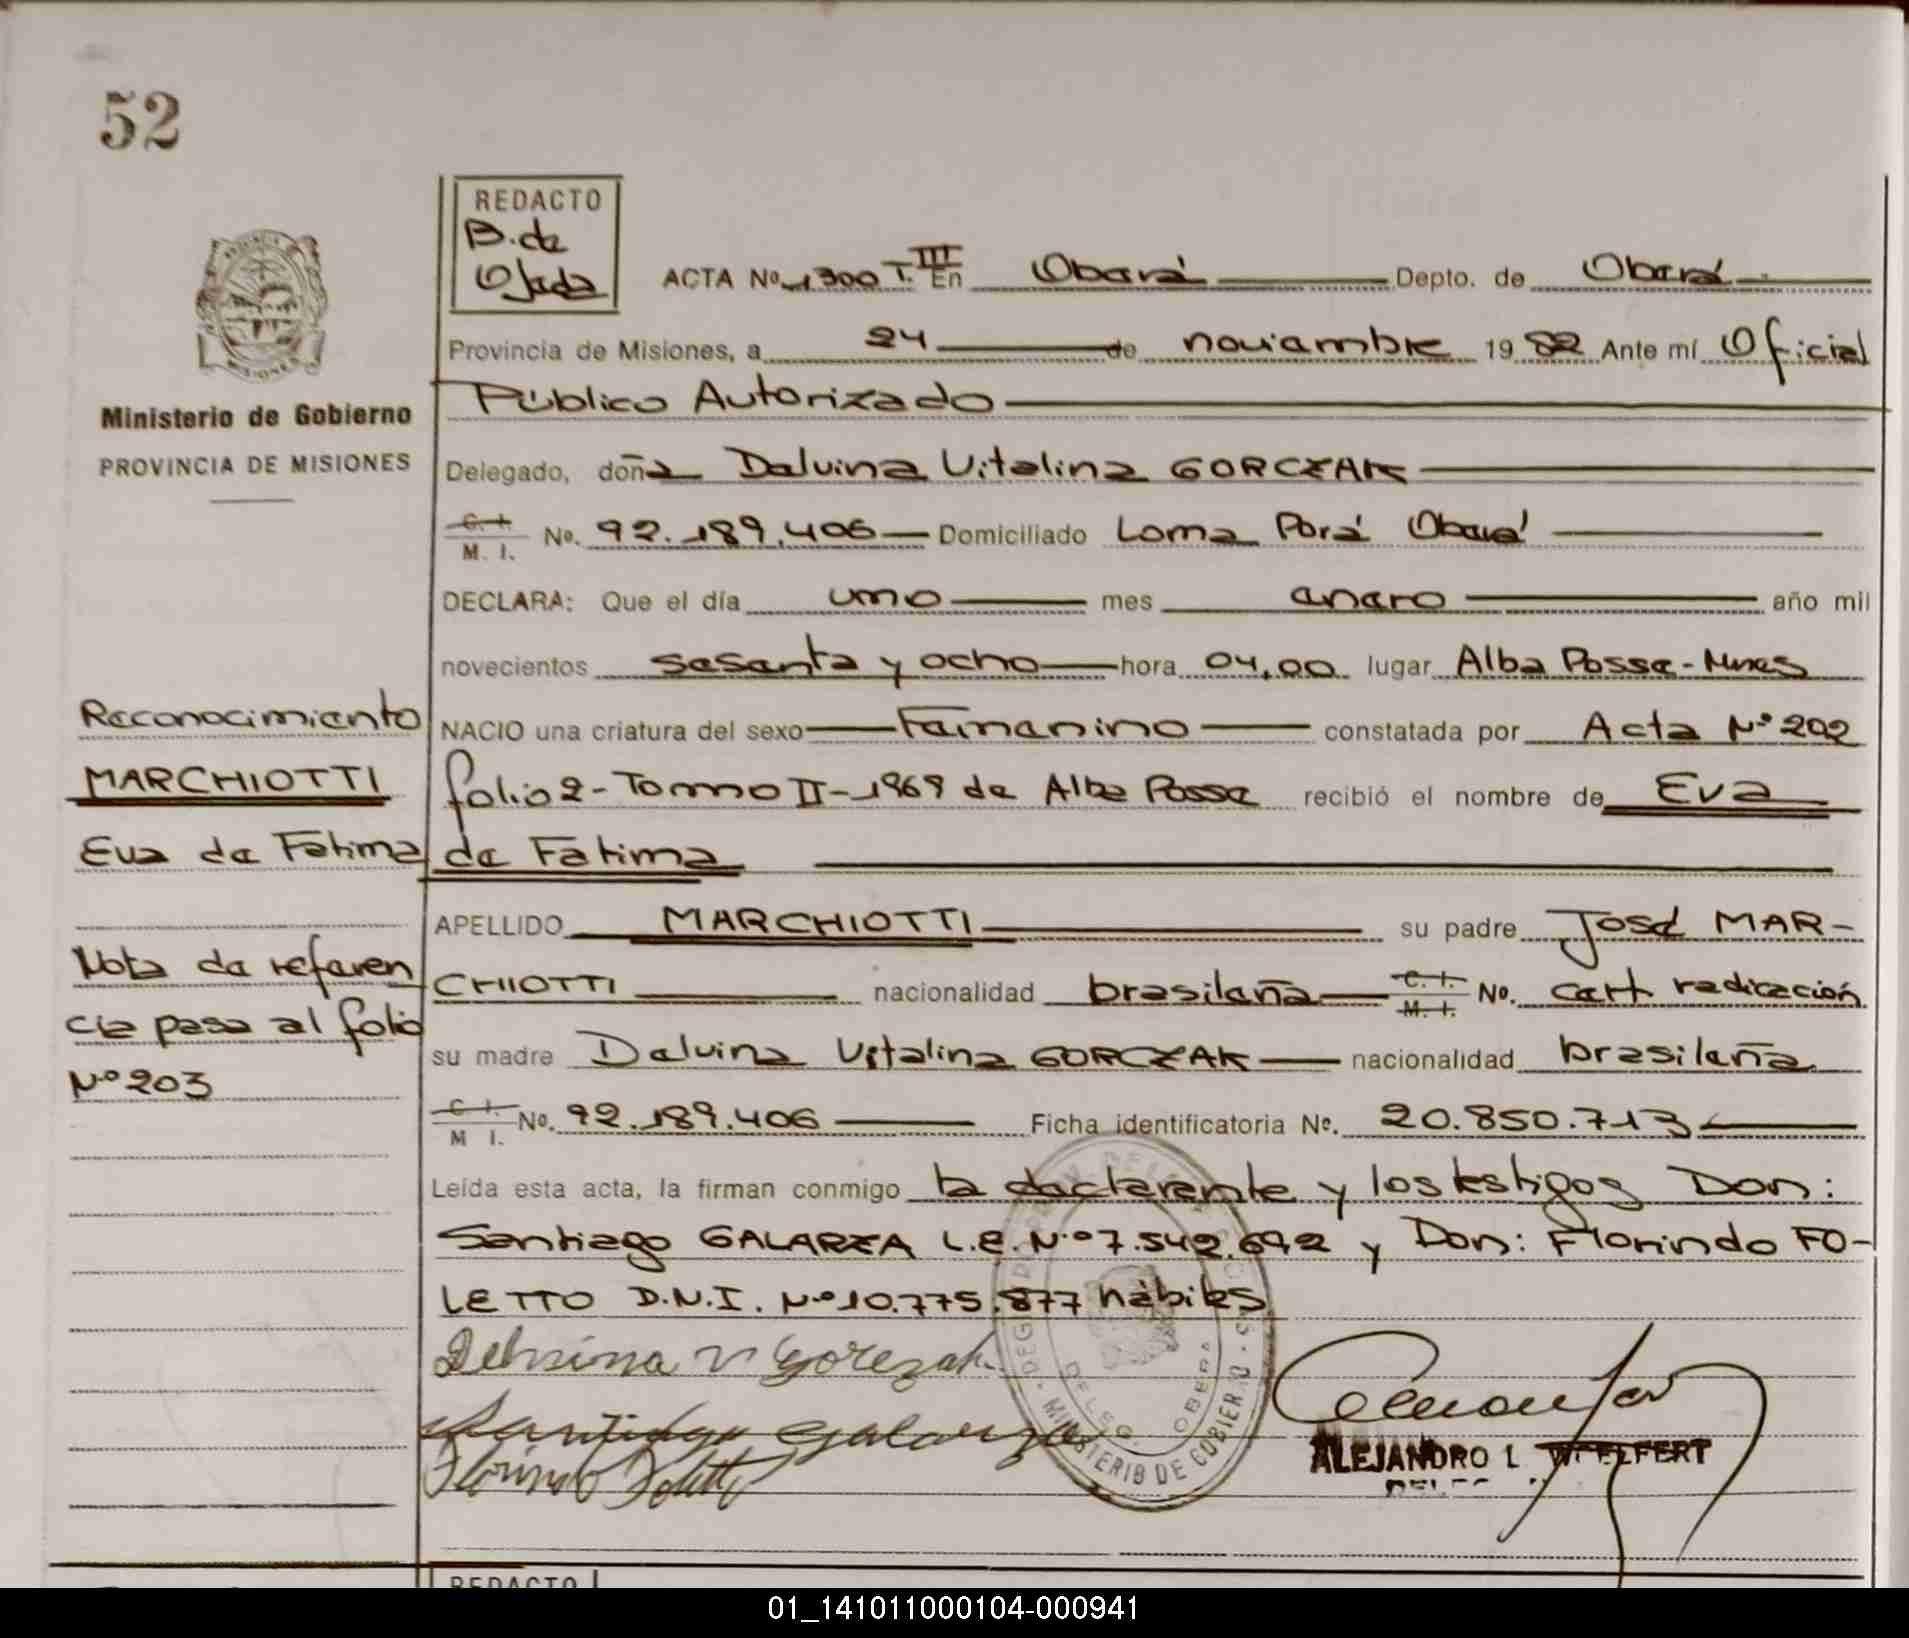 52
REDACTO
B. de
Ojeda
ACTA No. 1300 T. III En Oberá Depto. de Oberá
Provincia de Misiones, a 24 de noviembre 19 82 Ante mí Oficial
Público Autorizado
Ministerio de Gobierno
PROVINCIA DE MISIONES
Delegado, doña Dalvina Vitalina GORCZAK
C. I.
M. I. No. 92.189.406 Domiciliado Loma Porá Oberá
DECLARA: Que el día uno mes enero año mil
novecientos sesenta y ocho hora 04,00 lugar Alba Posse - Mnes
NACIO una criatura del sexo Femenino constatada por Acta Nº 202
folio 2 - Tomo II - 1969 de Alba Posse recibió el nombre de Eva
de Fatima
Reconocimiento
MARCHIOTTI
Eva de Fatima
Nota de referen
cia pasa al folio
Nº 203
APELLIDO MARCHIOTTI su padre José MAR-
CHIOTTI nacionalidad brasileña C. I. M. I. No. cert radicación
su madre Dalvina Vitalina GORCZAK nacionalidad brasileña
C. I.
M I. No. 92.189.406 Ficha identificatoria No. 20.850.713
Leída esta acta, la firman conmigo la declarante y los testigos Don:
Santiago GALARZA L.E. Nº 7.542.692 y Don: Florindo FO-
LETTO D.N.I. Nº 10.775.877 hábiles
Delvina V Gorczak
Santiago Galarza
Florindo Foletto
DELEG. OBERA
MINISTERIO DE GOBIERNO
ALEJANDRO L.
REDACTO
01_141011000104-000941